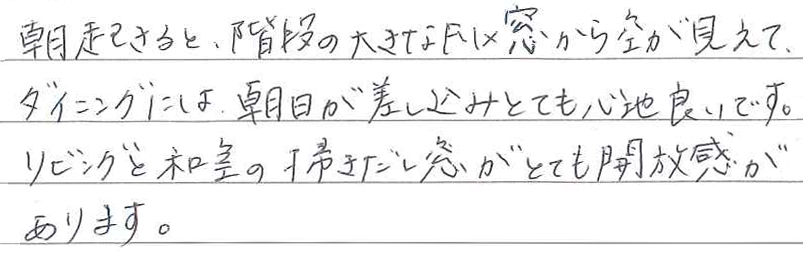 朝起きると、階段の大きなFIX窓から空が見えて、
ダイニングには、朝日が差し込みとても心地良いです。
リビングと和室の掃きだし窓がとても開放感が
あります。